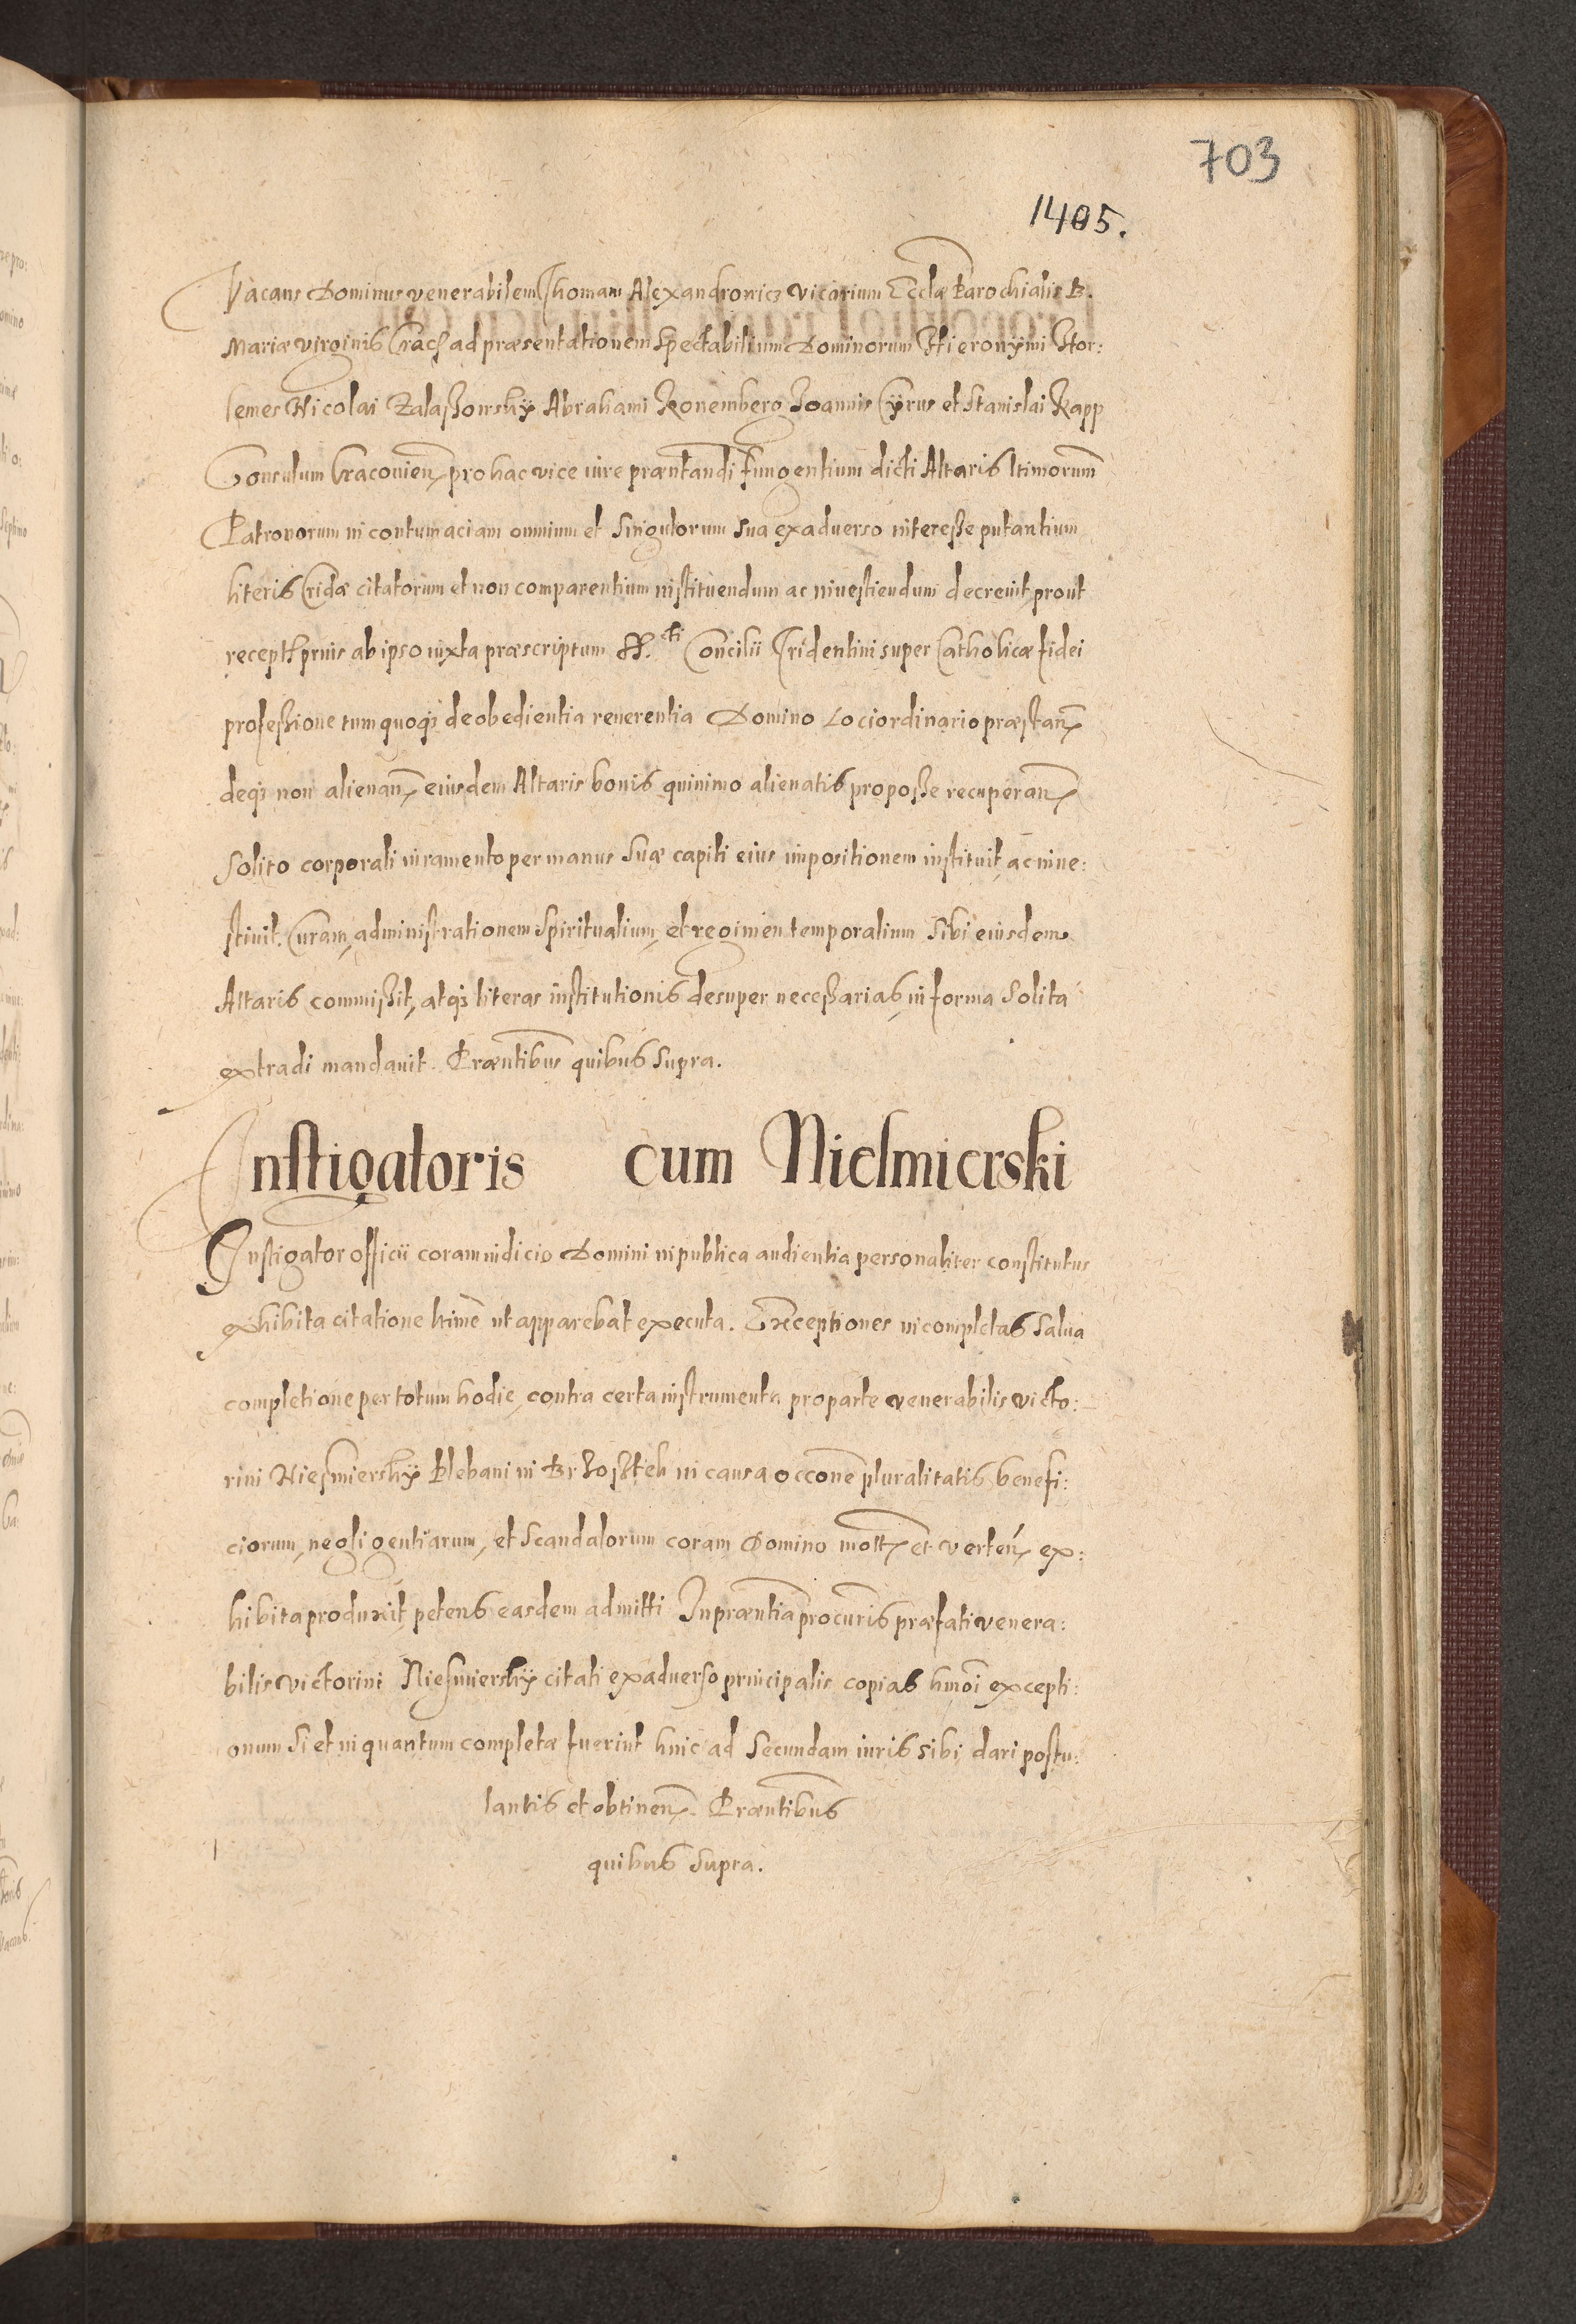 703
1405.
Vacans Dominus venerabilem Thomam Alexandrowicz vicarium Ecclæ Parochialis B.
Mariæ virginis Crac ad præsentationem Spectabilium Dominorum Hieronymi Stor:
Nicolai Zalaßowsky Abrahami Ronemberg Joannis Cyrus et Stanislai Kapp
Consulum Cracovien pro hac vice iure præntandi fungentium dicti Altaris ltimorum
Patronorum in contumaciam omnium et Singulorum sua exadverso interesse putantium
literis Cridæ citatorum et non comparentium instituendum ac investiendum decrevit, prout
prius ab ipso iuxta præscriptum SS.cti Concilii Tridentini super Catholicæ fidei
professione tum quoq de obedientia reverentia Domino Loci ordinario præstan
deq non alienan eiusdem Altaris bonis quinimo alienatis pro posse recuperan
Solito corporali iuramento per manus Suæ capiti eius impositionem instituit, ac inve:
stivit. Curam, administrationem Spiritualium, et regimen temporalium Sibi eiusdem
Altaris commisit, atq literas institutionis desuper necessarias, in forma Solita
extradi mandavit. Præntibus quibus Supra.
Instigatoris cum Niesmierski
Instigator officii coram iudicio Domini in publica audientia personaliter constitutus
exhibita citatione ltime ut apparebat executa. Exceptiones incompletas Salva
completione per totum hodie, contra certa instrumenta pro parte venerabilis victo:
rini Niesmiersky Plebani in Brzostek in causa occone pluralitatis benefi:
ciorum, negligentiarum, et Scandalorum coram Domino mott et verten ex:
hibita produxit, petens easdem admitti In præntia procuris præfati venera:
bilis victorini Niesmiersky citati exadverso principalis copias hmoi excepti:
onum Si et in quantum completæ fuerint hinc ad Secundam iuris sibi dari postu:
lantis et obtinen. Præntibus
quibus Supra.